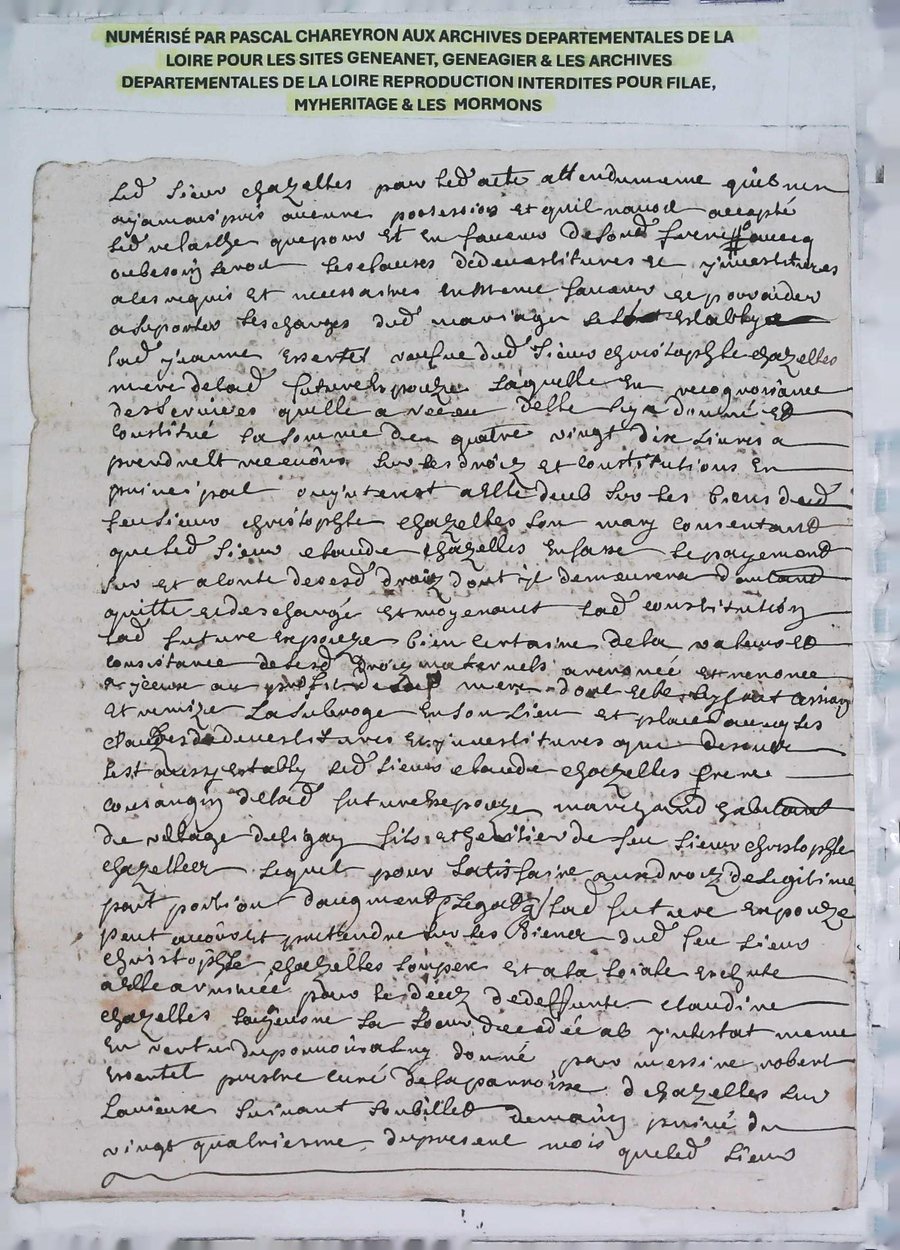 NUMÉRISÉ PAR PASCAL CHAREYRON AUX ARCHIVES DEPARTEMENTALES DE LA
LOIRE POUR LES SITES GENEANET, GENEAGIER & LES ARCHIVES
DEPARTEMENTALES DE LA LOIRE REPRODUCTION INTERDITES POUR FILAE,
MYHERITAGE & LES MORMONS
Led sieur chazelles par led acte attendu meme quil nen
ay jamais pris aucune possession et quil navoit accepté
led relasche que pour et en faveur de sond frere aucq
ou besoin seroit les clauses dedevestitures et jnvestitures
a ce requis et necessaires en meme faveur et pour aider
a suporter les charges dud mariage sest establye
lad jeanne essertel veufve dud sieur christophle chazelles
mere de lad future espouze laquelle en recognoissance
des services quelle a receu delle luy a donné et
constitué la somme de quatre vingt dix livres a
prendre et recevoir sur les droicz et constitutions en
principal ou jnterest a elle deub sur les biens dud
feu sieur christophle chazelles son mary consentant
que led sieur claude chazelles en fasse le payement
sur et a conte desesd droiz dont jl demeurera dautant
quitte et deschargé et moyenant lad constitution
lad future espouze bien certaine de la valeur et
consistance desesd droicz maternels a renoncé et renonce
au profit de sad mere dont elle luy fait cession
et remize la subroge en son lieu et place aucq les
clauzes dedevestitures et jnvestitures que dessus
sest aussy estably led sieur claude chazelles frere
consanguin de lad future espouze marchand habitant
du village de ligay fils et heritier de feu sieur christophle
chazelles lequel pour satisfaire aux droicz de legitime
part portion daugment legat lad future espouze
peut avoir et pretendre sur les biens dud feu sieur
christophle chazelles son pere et a la loialle escheute
a elle arrivée par le decez de deffunte claudine
chazelles sa soeur decedée ab jntestat meme
en vertu du pouvoir a luy donné par messire robert
essertel prestre curé de la parroisse de chazelles sur
lavieu suivant son billet de main privé du
vingt quatrieme du present mois que led sieur